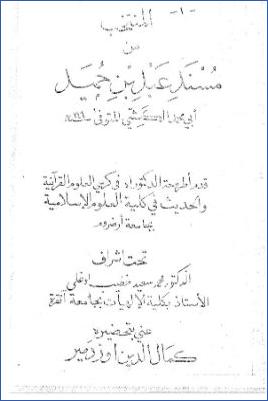 - ١ -
المنتخب
من
مُسْنَدِ عَبْدِ بْنِ حُمَيْد
أبي محمد الكشي المتوفى
قدم أطروحة الدكتوراه في كرسي العلوم القرآنية
والحديث في كلية العلوم الإسلامية
بجامعة أرضروم
تحت اشراف
الدكتور محمد سعيد خطيب اوغلى
الأستاذ بكلية الالهيات بجامعة أنقرة
عني بتحضيره
كمال الدين اوزدمير